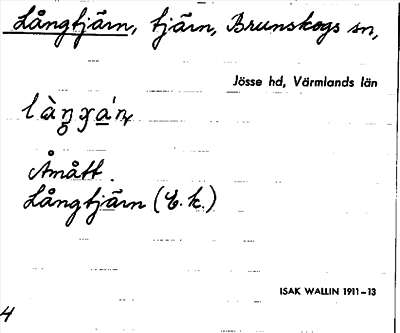 Långtjärn, tjärn, Brunskogs sn,
Jösse hd, Värmlands län
Åmått.
Långtjärn (E.k.)
ISAK WALLIN 1911-13
4